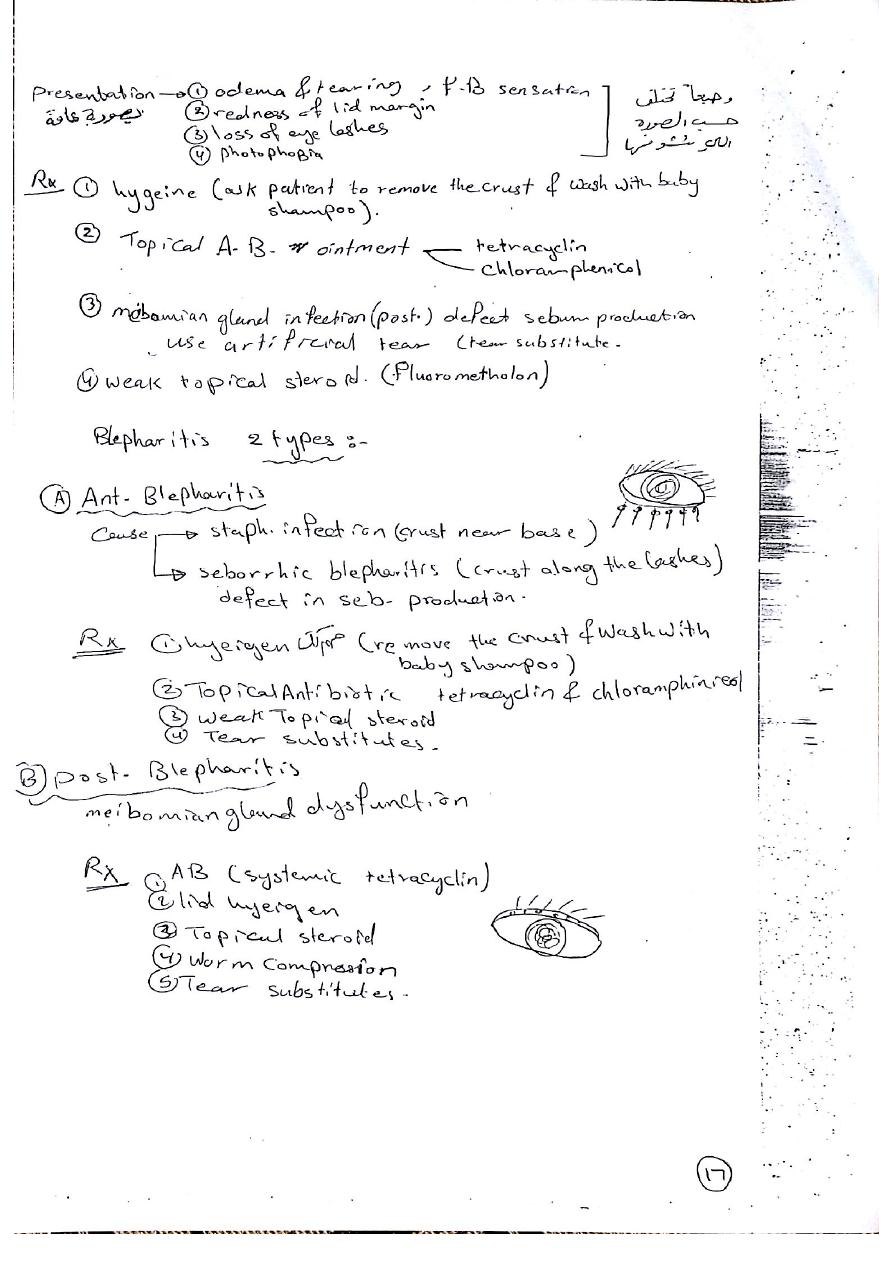 Presentation → ① odema & tearing , F.B sensation
بصورة عامة
② redness of lid margin
③ loss of eye lashes
④ photophobia
وضعا تختلف
حسب الصورة
Rx ① hygeine (ask patient to remove the crust & wash with baby
shampoo).
② Topical A-B- ointment tetracyclin
chloramphenicol
③ mebomian gland infection (post.) defect sebum production
use artificial tear (tear substitute.
④ weak topical steroid. (Fluorometholon)
Blepharitis 2 types :-
Ⓐ Ant- Blepharitis
Cause → staph. infection (crust near base)
→ seborrhic blepharitis (crust along the lashes)
defect in seb- production.
Rx ① hyeigen (remove the crust & wash with
baby shampoo)
② Topical Antibiotic tetracyclin & chloramphinicol
③ weak Topical steroid
④ Tear substitutes.
Ⓑ post- Blepharitis
meibomian gland dysfunction
Rx ① AB (systemic tetracyclin)
② lid hyeigen
③ Topical steroid
④ Worm compression
⑤ Tear substitutes.
١٧